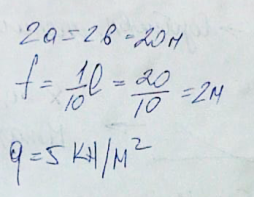 2a = 2в = 20м
f = 1/10 l = 20/10 = 2м
q = 5 КН/м²